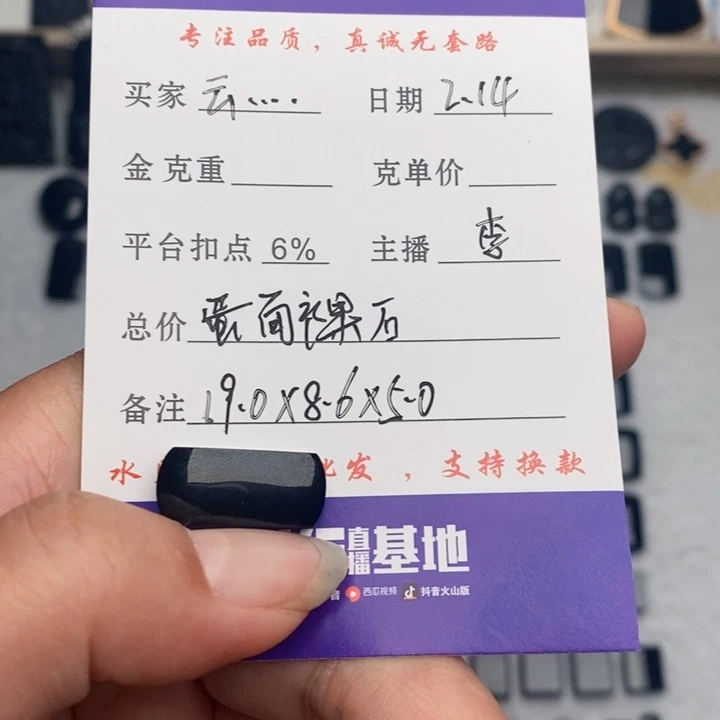 专注品质，真诚无套路
买家 云.... 日期 2.14
金克重 克单价
平台扣点 6% 主播 李
总价 蛋面裸石
备注 19.0X8.6X5.0
水 批发，支持换款
直播基地
音 西瓜视频 抖音火山版